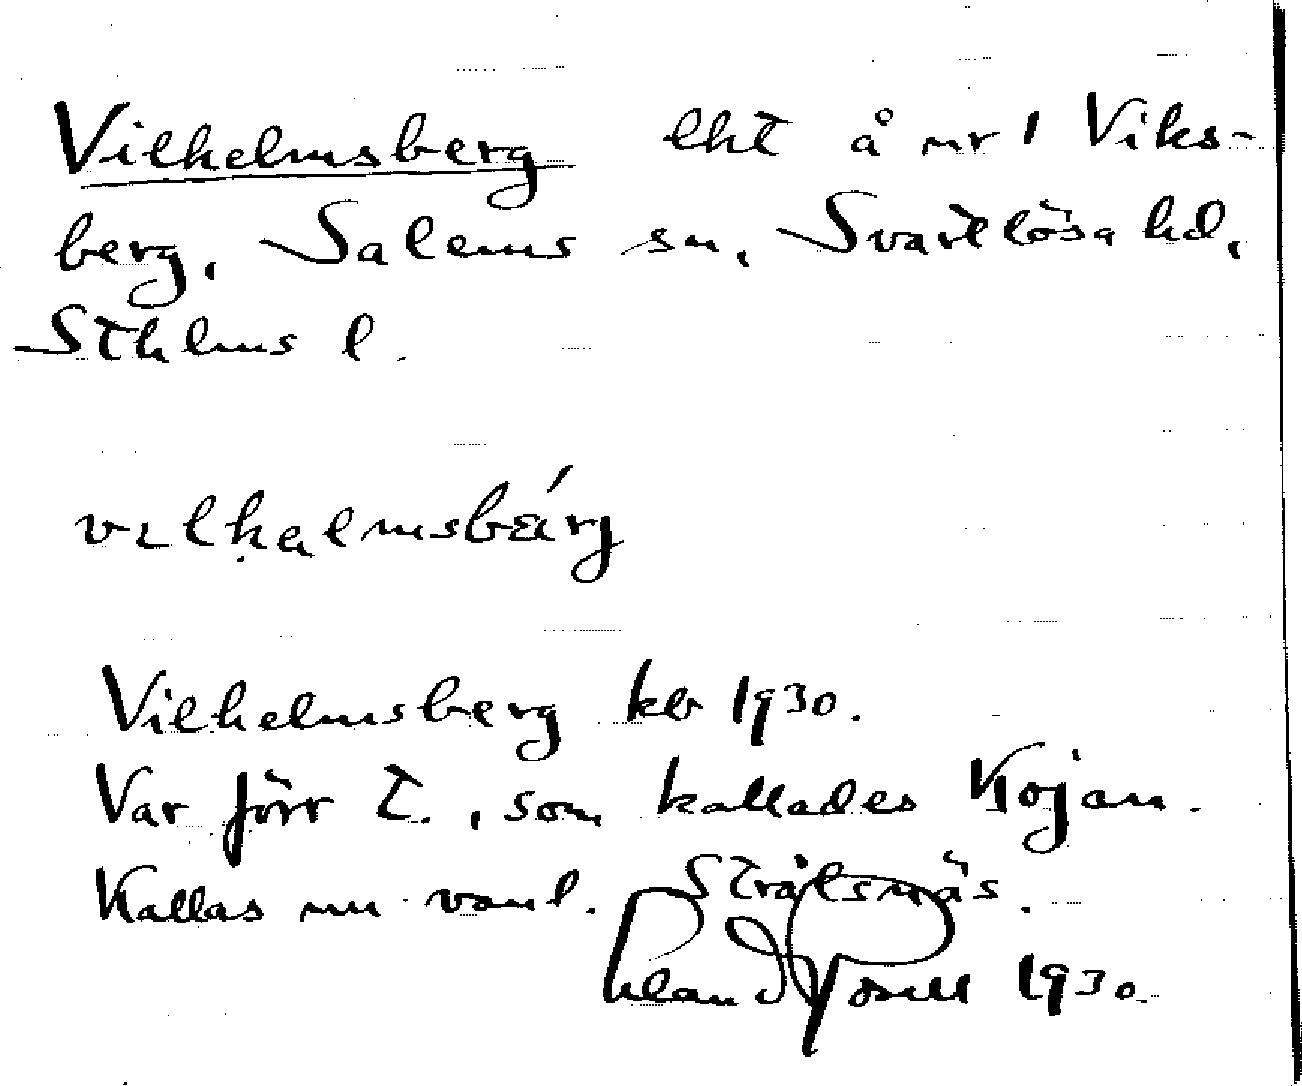 Vilhelmsberg lht å nr 1 Viks-
berg, Salems sn, Svartlösa hd,
Sthlms l.
vɪlhalmsbǽrj
Vilhelmsberg kb 1930.
Var förr t., som kallades Kojan.
Kallas nu vanl. Strålsnäs.
1930.